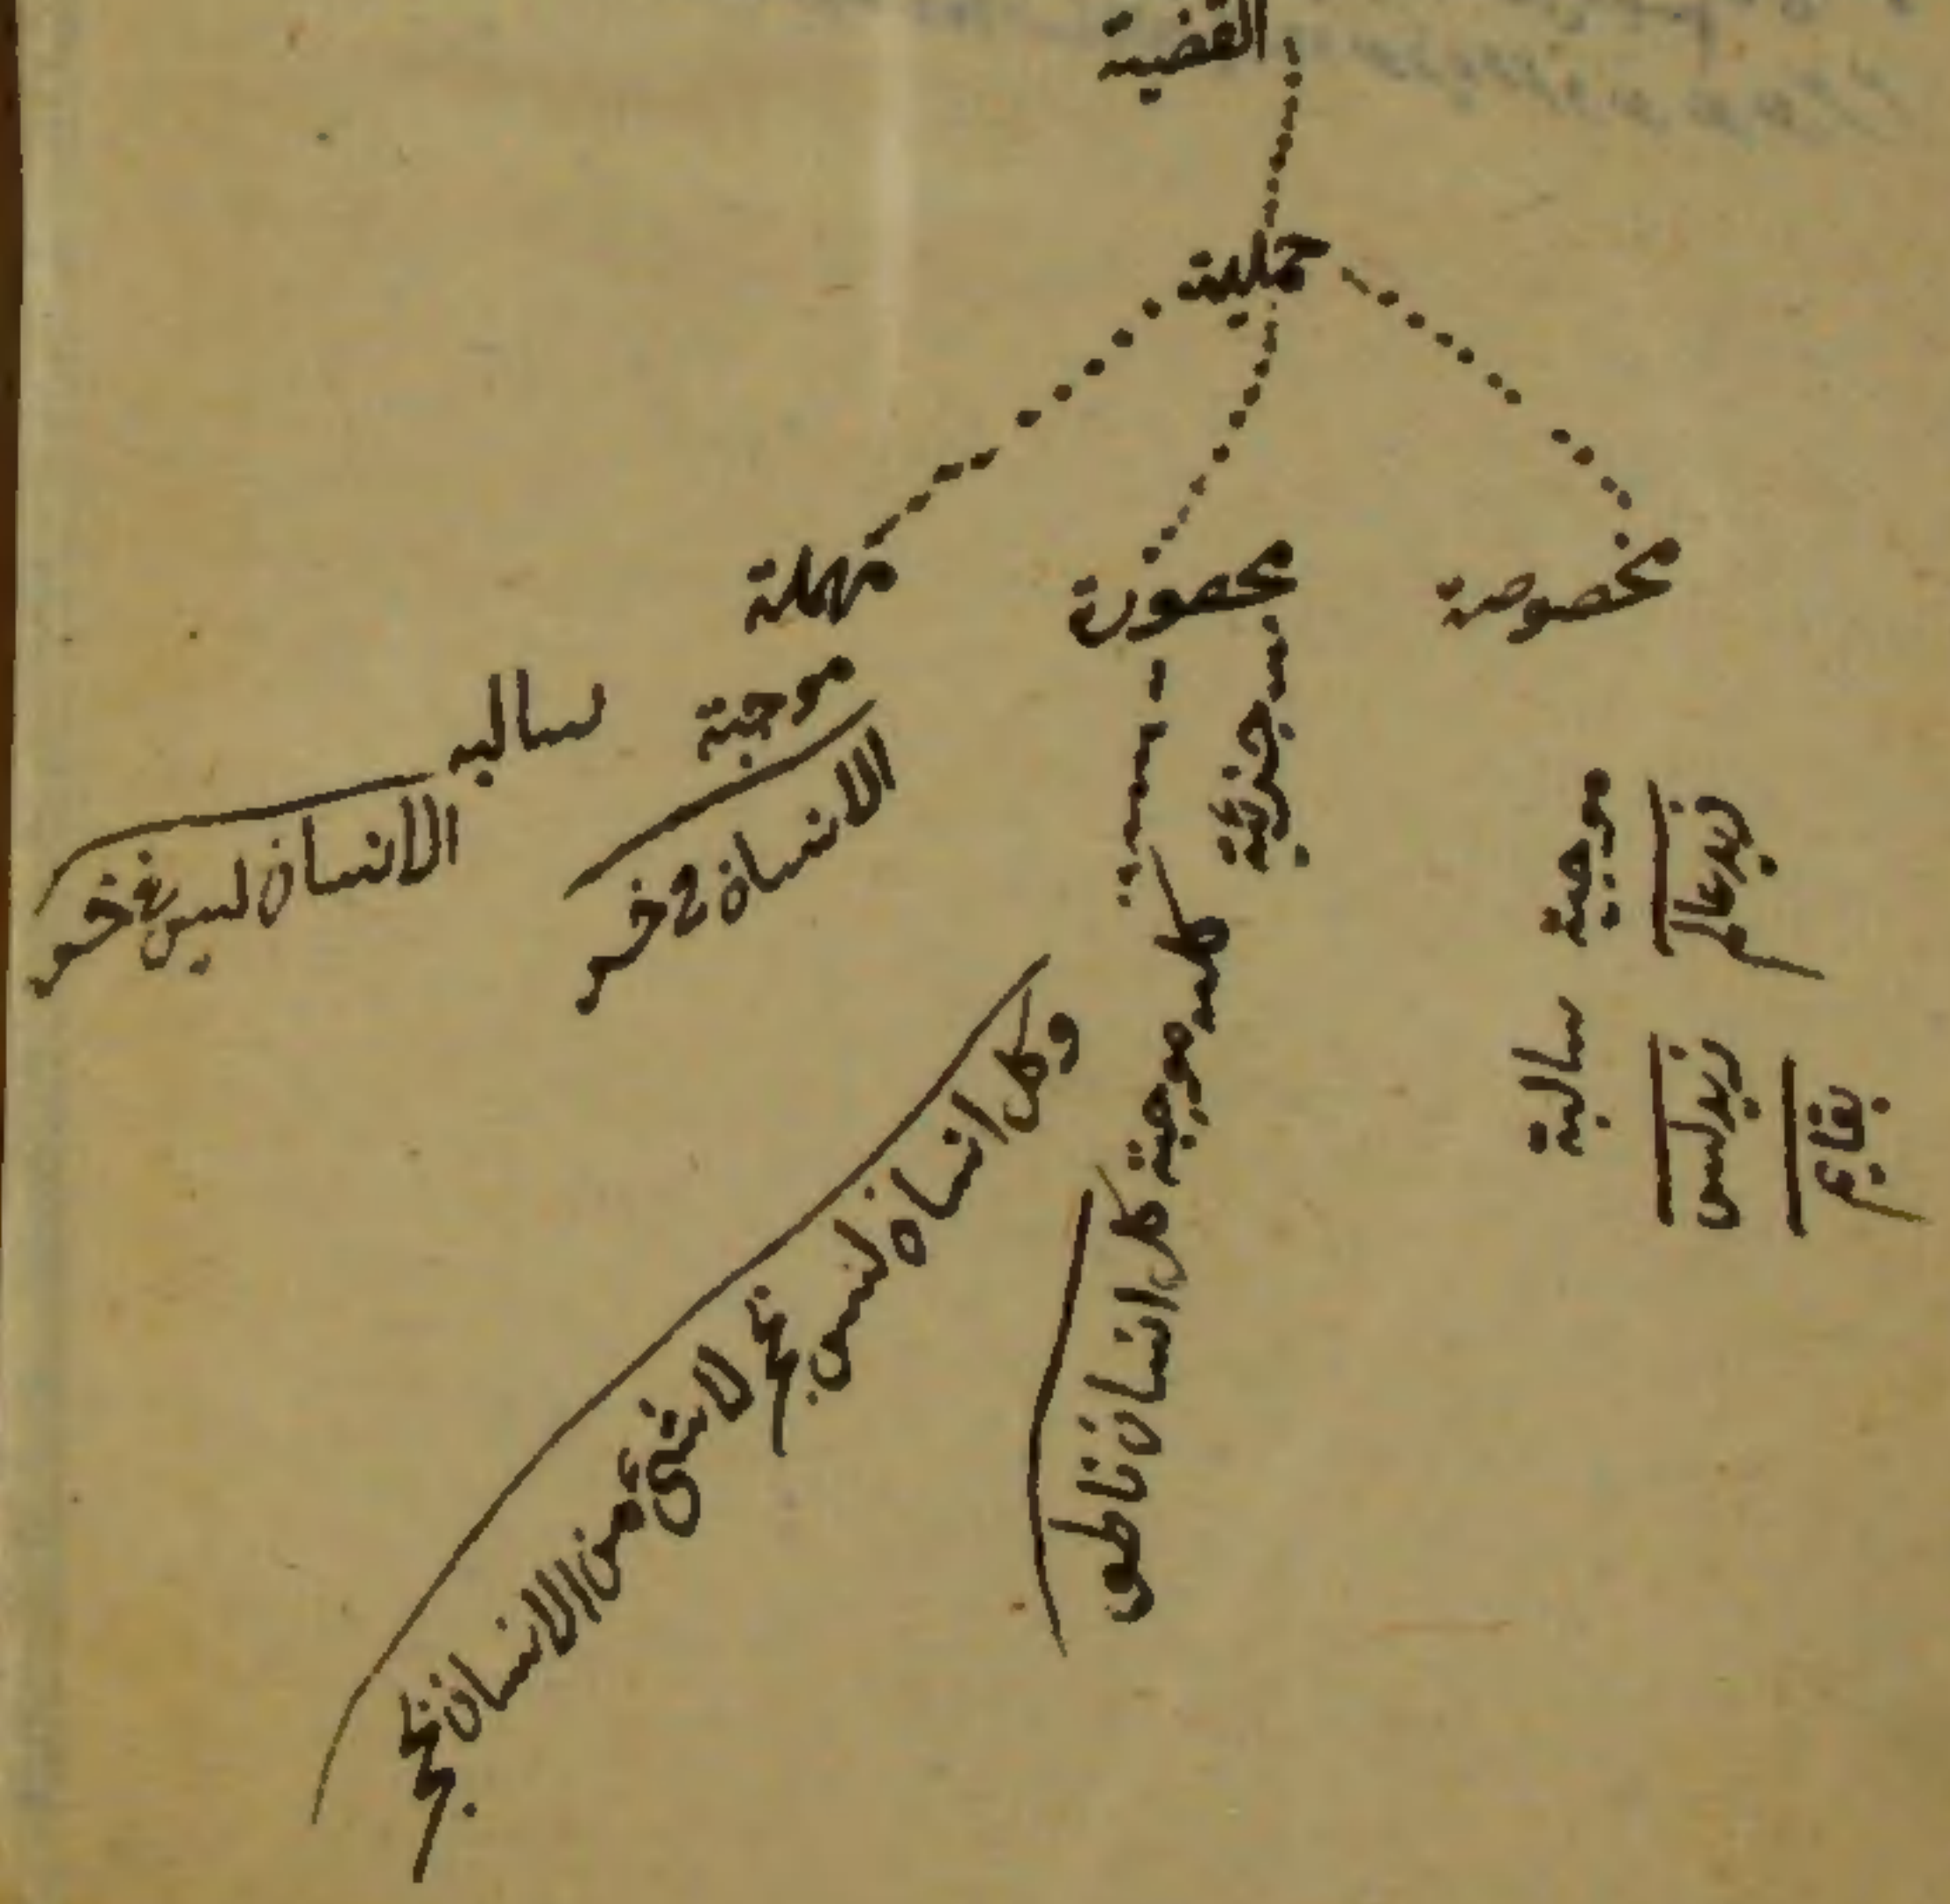 القضية
حملية
مخصوصة
محصورة
مهملة
موجبة
زيد عالم
سالبة
زيد ليس
بقائم
جزئية
كلية موجبة كل انسان ناطق
وكل انسان ليس بحجر لا شيء من الانسان بحجر
موجبة
الانسان في خسر
سالبه
الانسان ليس في خسر